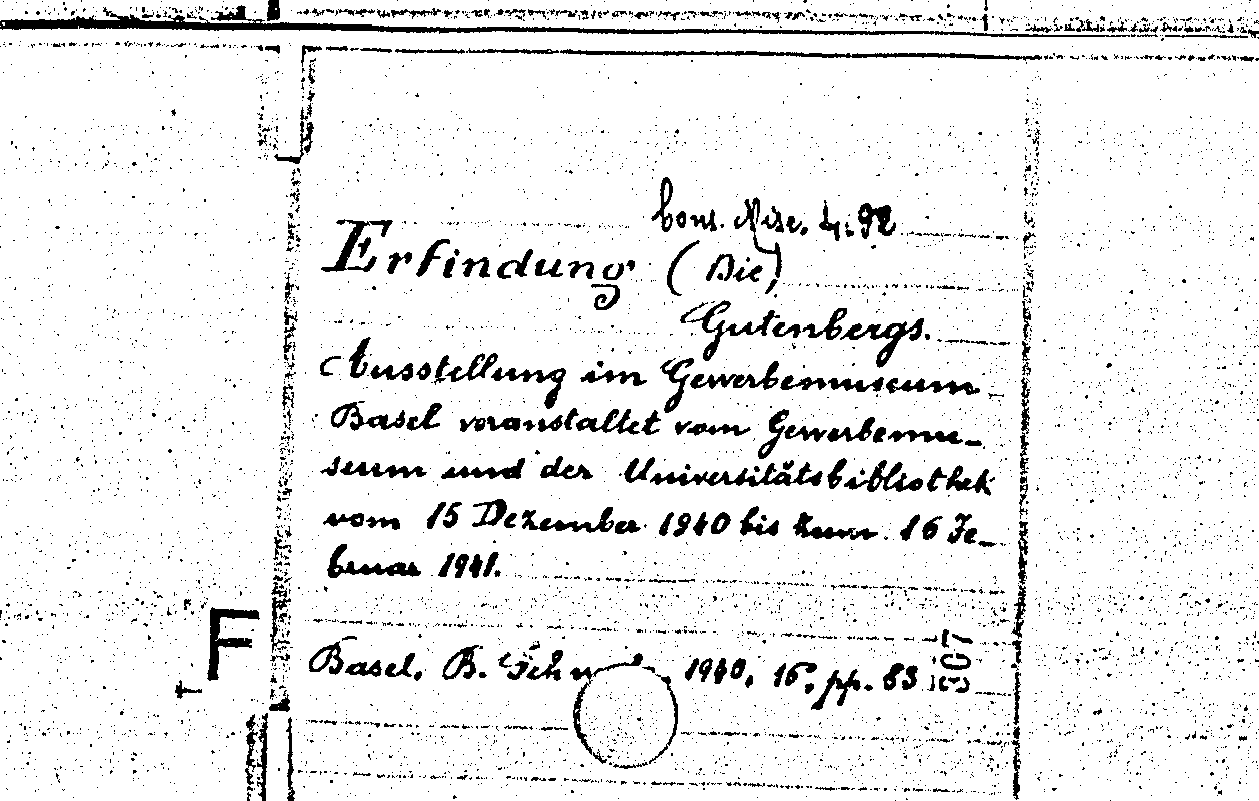 Cons. Misc. 4.92
Erfindung (Die)
Gutenbergs.
Ausstellung im Gewerbemuseum
Basel veranstaltet vom Gewerbemu-
seum und der Universitätsbibliothek
vom 15 Dezember 1940 bis zum 16 Fe-
bruar 1941.
F
Basel, B. 1940, 16, pp. 83
307